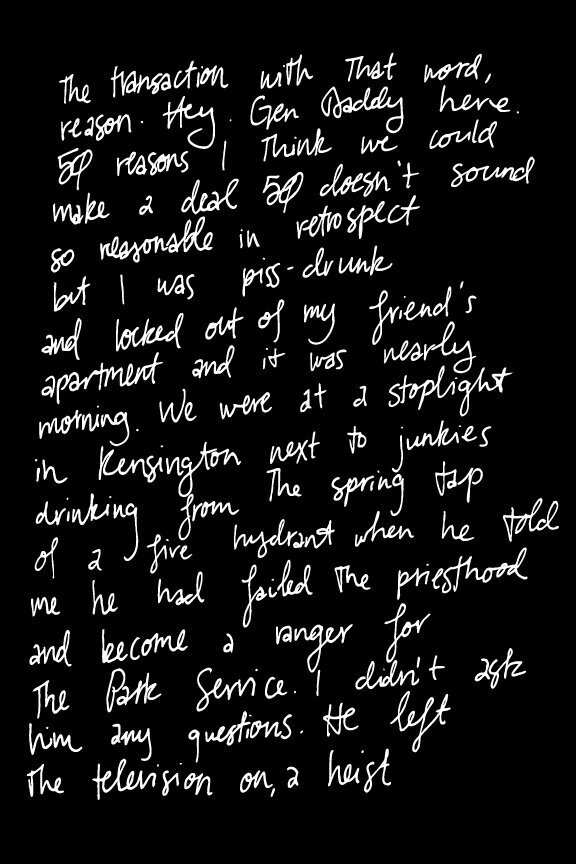 The transaction with That word,
reason. Hey. Gen Daddy here.
50 reasons I Think we could
make a deal 50 doesn't sound
so reasonable in retrospect
but I was piss-drunk
and locked out of my friend's
apartment and it was nearly
morning. We were at a stoplight
in Kensington next to junkies
drinking from The spring tap
of a fire hydrant when he told
me he had failed The priesthood
and become a ranger for
The Park Service. I didn't ask
him any questions. He left
The television on, a heist